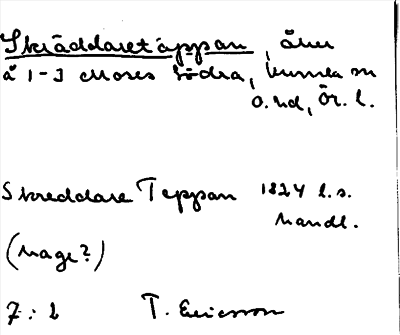 Skräddaretäppan, åker
å 1-3 Mores Södra, Kumla sn
Ö. hd, Ör. l.
Skreddare Teppan 1824 l.s.
handl.
(hage?)
7:2 T. Ericsson